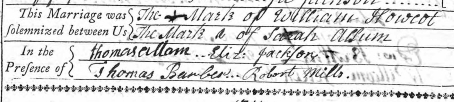 This Marriage was The + Mark of William Howcot
solemnized between Us The Mark x of Sarah Allum
In the thomas allam Eliz. Jackson
Presence of Thomas Barber Robert Mills